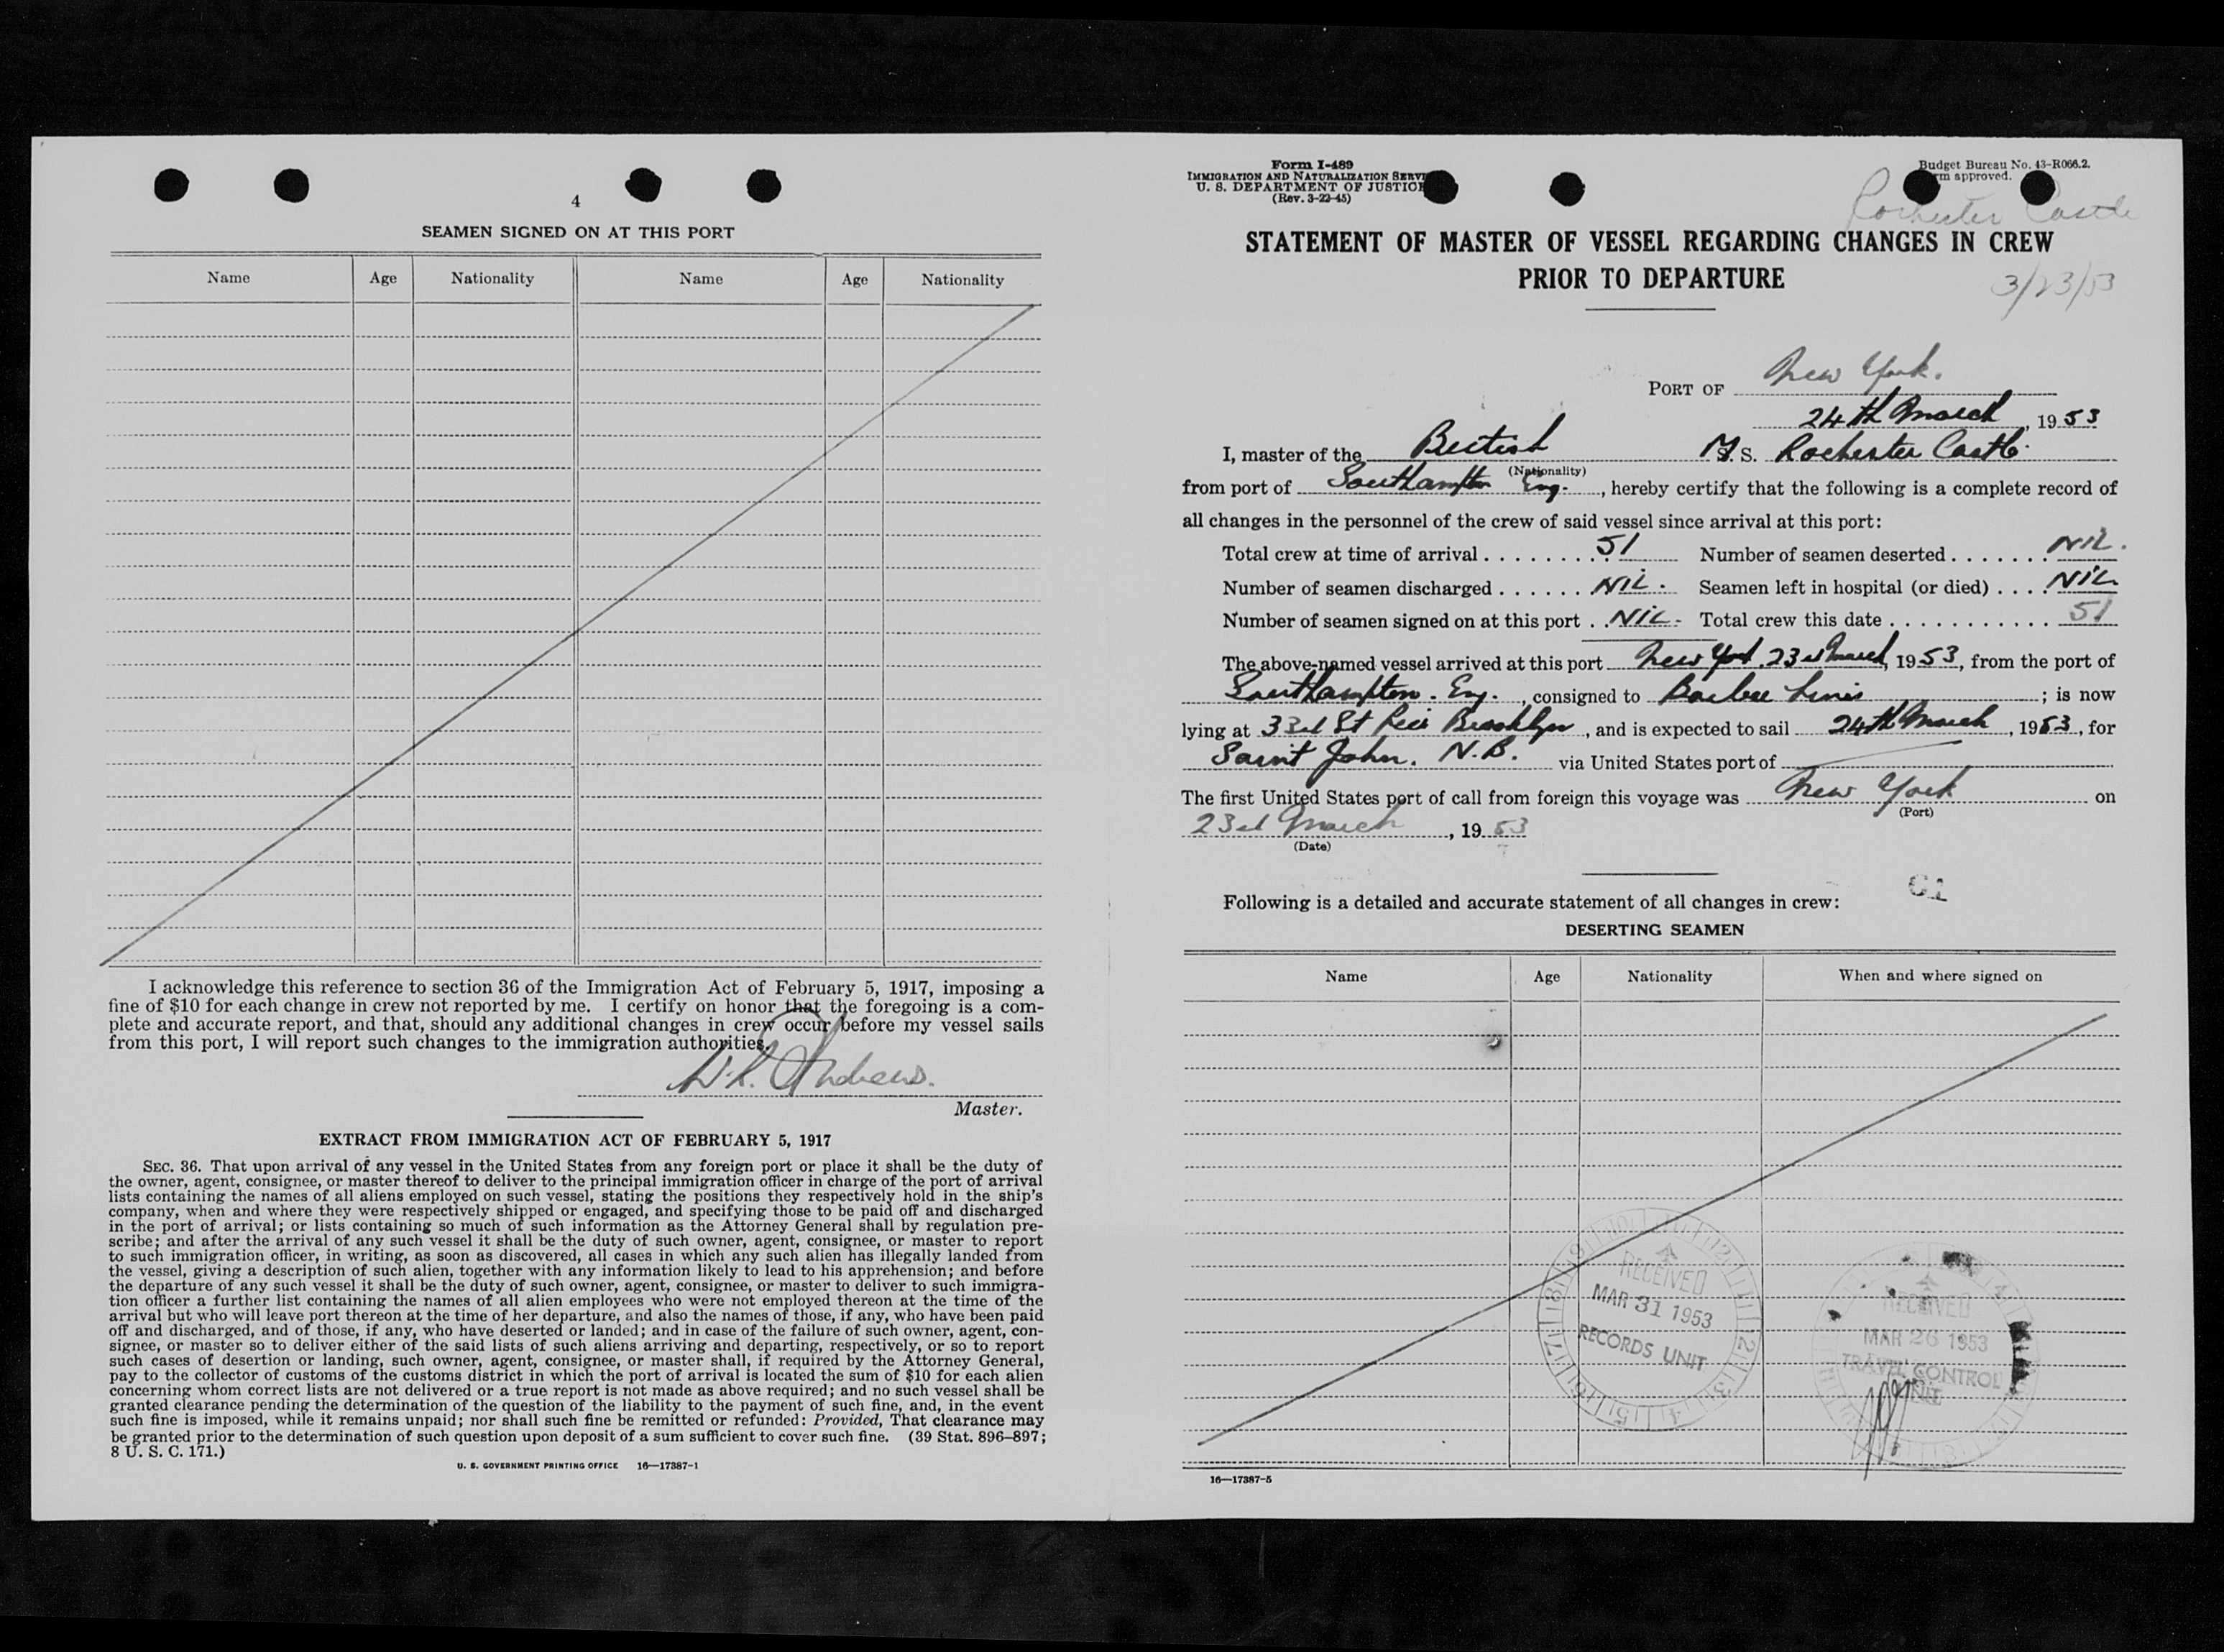 4
SEAMEN SIGNED ON AT THIS PORT
Name Age Nationality Name Age Nationality
I acknowledge this reference to section 36 of the Immigration Act of February 5, 1917, imposing a
fine of $10 for each change in crew not reported by me. I certify on honor that the foregoing is a com-
plete and accurate report, and that, should any additional changes in crew occur before my vessel sails
from this port, I will report such changes to the immigration authorities.
Andrews.
Master.
EXTRACT FROM IMMIGRATION ACT OF FEBRUARY 5, 1917
SEC. 36. That upon arrival of any vessel in the United States from any foreign port or place it shall be the duty of
the owner, agent, consignee, or master thereof to deliver to the principal immigration officer in charge of the port of arrival
lists containing the names of all aliens employed on such vessel, stating the positions they respectively hold in the ship's
company, when and where they were respectively shipped or engaged, and specifying those to be paid off and discharged
in the port of arrival; or lists containing so much of such information as the Attorney General shall by regulation pre-
scribe; and after the arrival of any such vessel it shall be the duty of such owner, agent, consignee, or master to report
to such immigration officer, in writing, as soon as discovered, all cases in which any such alien has illegally landed from
the vessel, giving a description of such alien, together with any information likely to lead to his apprehension; and before
the departure of any such vessel it shall be the duty of such owner, agent, consignee, or master to deliver to such immigra-
tion officer a further list containing the names of all alien employees who were not employed thereon at the time of the
arrival but who will leave port thereon at the time of her departure, and also the names of those, if any, who have been paid
off and discharged, and of those, if any, who have deserted or landed; and in case of the failure of such owner, agent, con-
signee, or master so to deliver either of the said lists of such aliens arriving and departing, respectively, or so to report
such cases of desertion or landing, such owner, agent, consignee, or master shall, if required by the Attorney General,
pay to the collector of customs of the customs district in which the port of arrival is located the sum of $10 for each alien
concerning whom correct lists are not delivered or a true report is not made as above required; and no such vessel shall be
granted clearance pending the determination of the question of the liability to the payment of such fine, and, in the event
such fine is imposed, while it remains unpaid; nor shall such fine be remitted or refunded: Provided, That clearance may
be granted prior to the determination of such question upon deposit of a sum sufficient to cover such fine. (39 Stat. 896–897;
8 U. S. C. 171.)
U. S. GOVERNMENT PRINTING OFFICE 16—17387-1
Form I-489
IMMIGRATION AND NATURALIZATION SERVI
U. S. DEPARTMENT OF JUSTICE
(Rev. 3-22-45)
Budget Bureau No. 43-R066.2.
rm approved.
Rochester Castle
STATEMENT OF MASTER OF VESSEL REGARDING CHANGES IN CREW
PRIOR TO DEPARTURE
3/23/53
PORT OF New York.
24th March, 1953
I, master of the British M.S. Rochester Castle.
(Nationality)
from port of Southampton Eng., hereby certify that the following is a complete record of
all changes in the personnel of the crew of said vessel since arrival at this port:
Total crew at time of arrival 51 Number of seamen deserted NIL.
Number of seamen discharged NIL. Seamen left in hospital (or died) NIL
Number of seamen signed on at this port NIL. Total crew this date 51
The above-named vessel arrived at this port New York. 23rd March, 1953, from the port of
Southampton. Eng., consigned to Barber Lines; is now
lying at 33rd St Pier Brooklyn, and is expected to sail 24th March, 1953, for
Saint John. N.B. via United States port of
The first United States port of call from foreign this voyage was New York on
(Port)
23rd March, 1953
(Date)
C1
Following is a detailed and accurate statement of all changes in crew:
DESERTING SEAMEN
Name Age Nationality When and where signed on
RECEIVED
MAR 31 1953
RECORDS UNIT
RECEIVED
MAR 26 1953
TRAVEL CONTROL
UNIT
16—17387-5